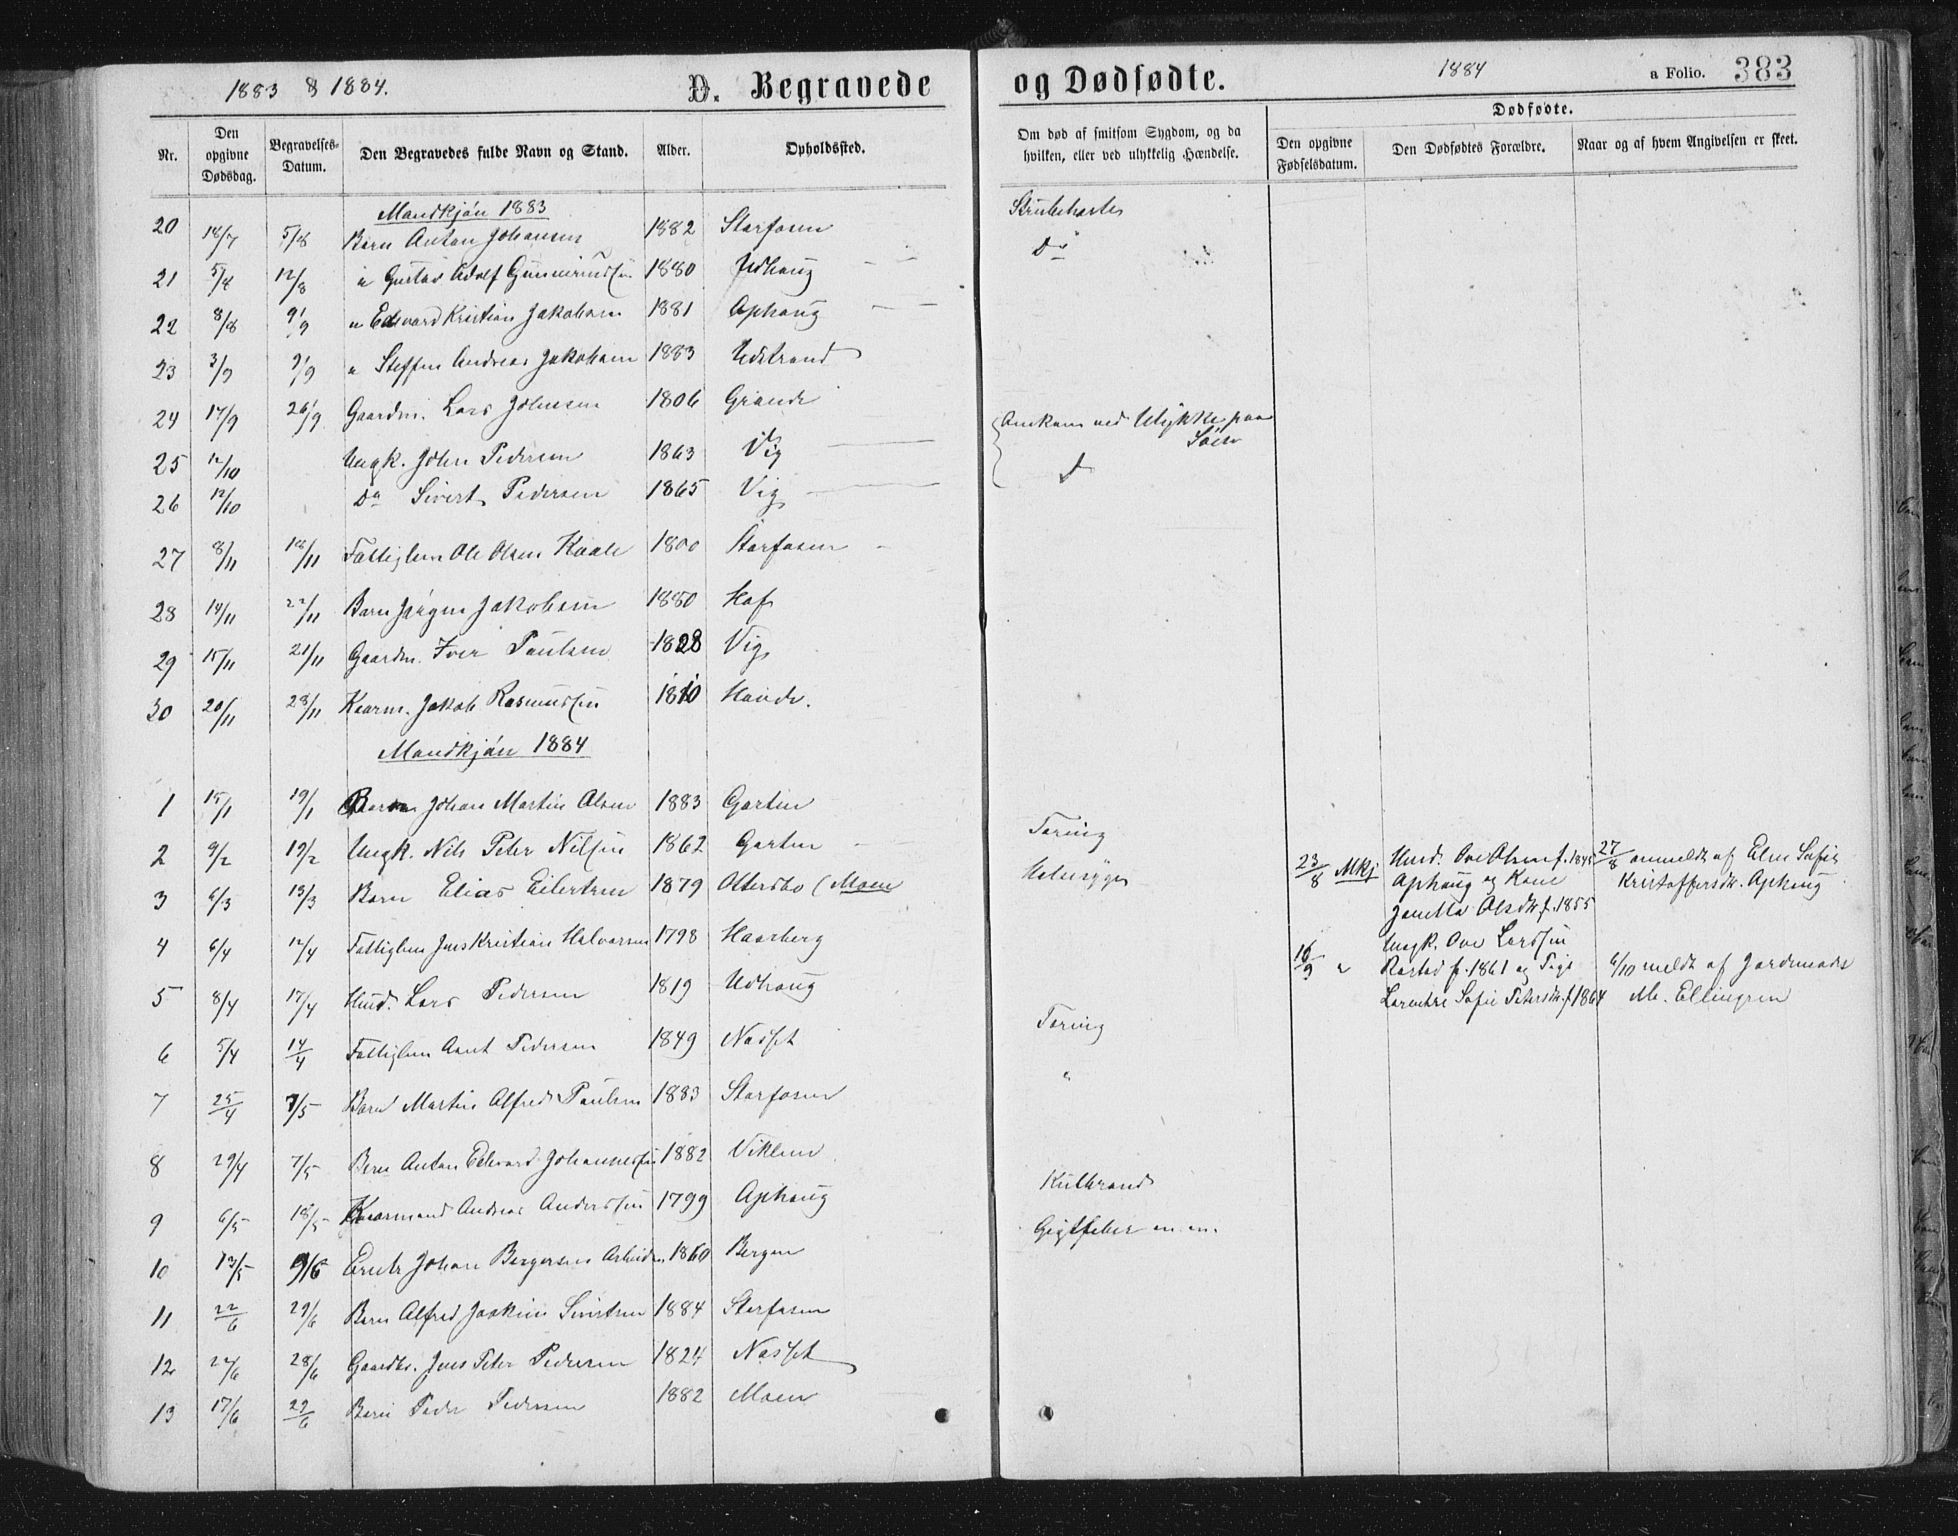 1883 & 1884.
D. Begravede
og Dødfødte.
1884
a Folio. 383
Nr.
Den opgivne Dødsdag.
Begravelses-Datum.
Den Begravedes fulde Navn og Stand.
Alder.
Opholdssted.
Om død af smitsom Sygdom, og da hvilken, eller ved ulykkelig Hændelse.
Dødfødte.
Den opgivne Fødselsdatum.
Den Dødfødtes Forældre.
Naar og af hvem Angivelsen er skeet.
Mandkjön 1883
20 18/7 5/8 Barn Anton Johansen 1882 Storfosen Strubehoste
21 5/8 12/8 " Gustav Adolf Gunneriussen 1880 Udhaug Do
22 8/8 9/9 " Edevard Kristian Jakobsen 1881 Ophaug
23 3/9 9/9 " Steffen Andreas Jakobsen 1883 Udstrand
24 17/9 26/9 Gaardm. Lars Johnsen 1806 Grande
25 12/10 Ungk. John Pedersen 1863 Vig Omkom ved Ulykke paa Søen
26 12/10 Do Sivert Pedersen 1865 Vig D
27 8/11 18/11 Fattiglem Ole Olsen Kaale 1800 Storfosen
28 14/11 22/11 Barn Jørgen Jakobsen 1880 Hof
29 15/11 21/11 Gaardm. Iver Paulsen 1828 Vig
30 20/11 28/11 Kaarm. Jakob Rasmussen 1810
Mandkjön 1884
1 15/1 19/1 Barn Johan Martin Olsen 1883 Garten
2 9/2 19/2 Ungk. Nils Peter Nilsen 1862 Garten Tæring
3 6/3 13/3 Barn Elias Eilertsen 1879 Ottersbo (Moen Halssyge
4 6/4 12/4 Fattiglem Jens Kristian Halvorsen 1798 Haarberg
5 8/4 17/4 Husd. Lars Pedersen 1819 Udhaug
6 5/4 14/4 Fattiglem Arnt Pedersen 1849 Næsset Tæring
7 25/4 7/5 Barn Martin Alfred Paulsen 1883 Storfosen "
8 29/4 7/5 Barn Anton Edevard Johannessen 1882 Viklem
9 6/5 18/5 Kaarmand Andreas Anderssen 1799 Ophaug Kulbrand
10 13/5 9/6 Johan Bergersen 1860 Bergen Gigtfeber m.m.
11 22/6 29/6 Barn Alfred Joakim Sivertsen 1884 Storfosen
12 22/6 28/6 Gaardbr. Jens Peter Pedersen 1824 Næsset
13 17/6 29/6 Barn Peder Pedersen 1882 Moen
23/8 Mkj Husd. Ove Olsen f. 1845 27/8 anmeldt af Elen Sofie
Ophaug og Kone Kristoffersdtr. Ophaug
Janetta Olsdtr f. 1855
16/9 " Ungk. Ove Larssen
f. 1861 og Pige 6/10 meldt af Jordemoder
Sofie Petersdtr. f 1864 M. Ellingsen